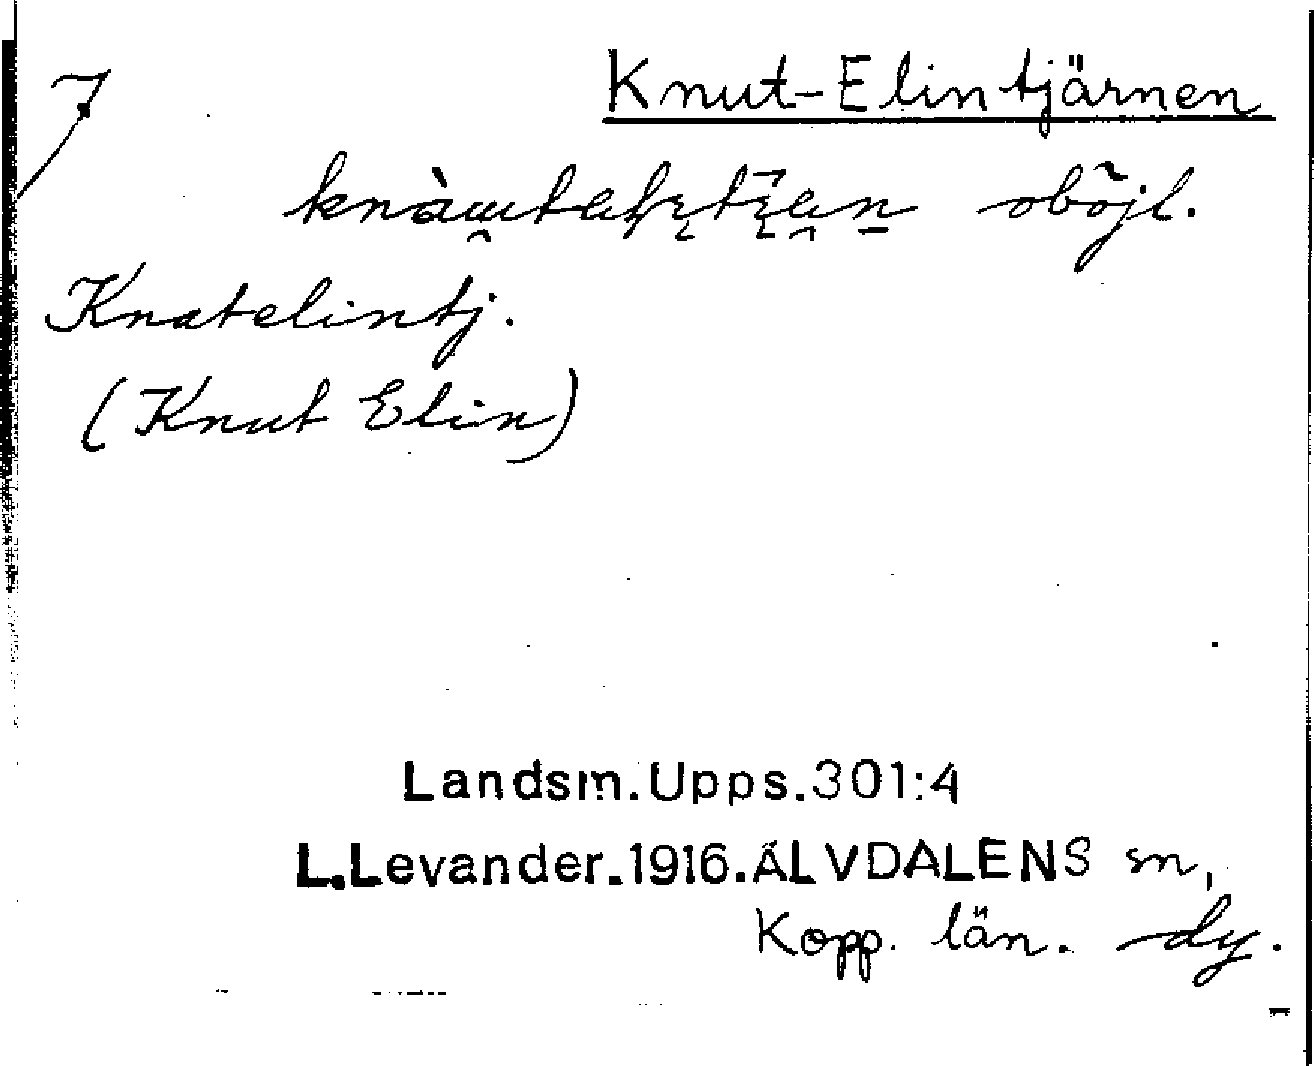 7
Knut-Elintjärnen
oböjl.
Knatelintj.
(Knut Elin)
Landsm.Upps.301:4
L.Levander.1916.ÄLVDALENS sn,
Kopp. län. dy.